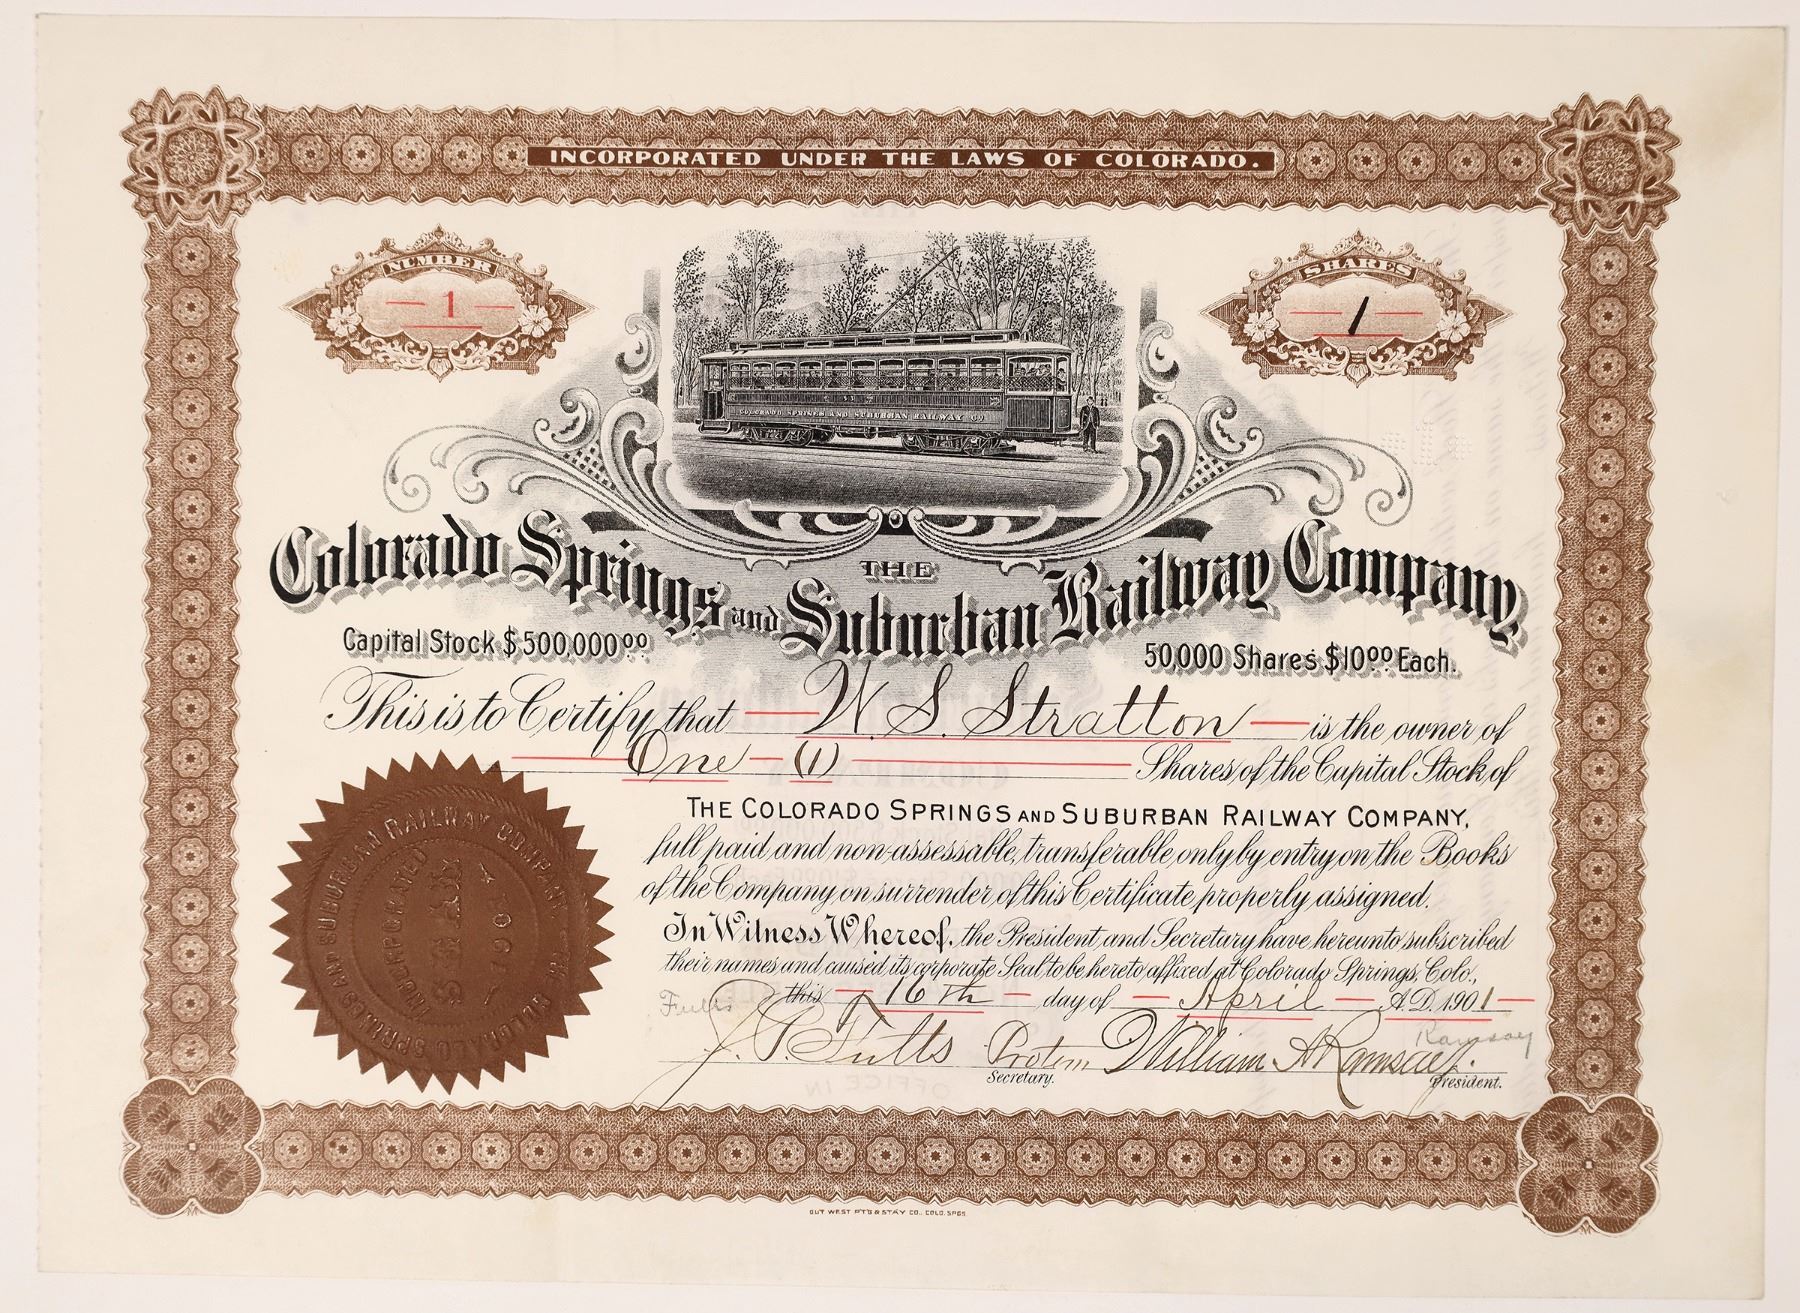 INCORPORATED UNDER THE LAWS OF COLORADO.
NUMBER
1
SHARES
1
COLORADO SPRINGS AND SUBURBAN RAILWAY CO
THE
Colorado Springs and Suburban Railway Company,
Capital Stock $500,000 00
50,000 Shares $10 00 Each.
This is to Certify that W. S. Stratton is the owner of
One (1) Shares of the Capital Stock of
THE COLORADO SPRINGS AND SUBURBAN RAILWAY COMPANY,
full paid and non-assessable, transferable only by entry on the Books
of the Company on surrender of this Certificate properly assigned.
In Witness Whereof, the President and Secretary have hereunto subscribed
their names and caused its corporate Seal to be hereto affixed at Colorado Springs, Colo.,
this 16th day of April A.D. 1901
Fults
Ramsay
Protem
Secretary.
William A Ramsay
President.
COLORADO SPRINGS AND SUBURBAN RAILWAY COMPANY
INCORPORATED
SEAL
1901
OUT WEST PT'G & STA'Y CO., COLO. SPGS.